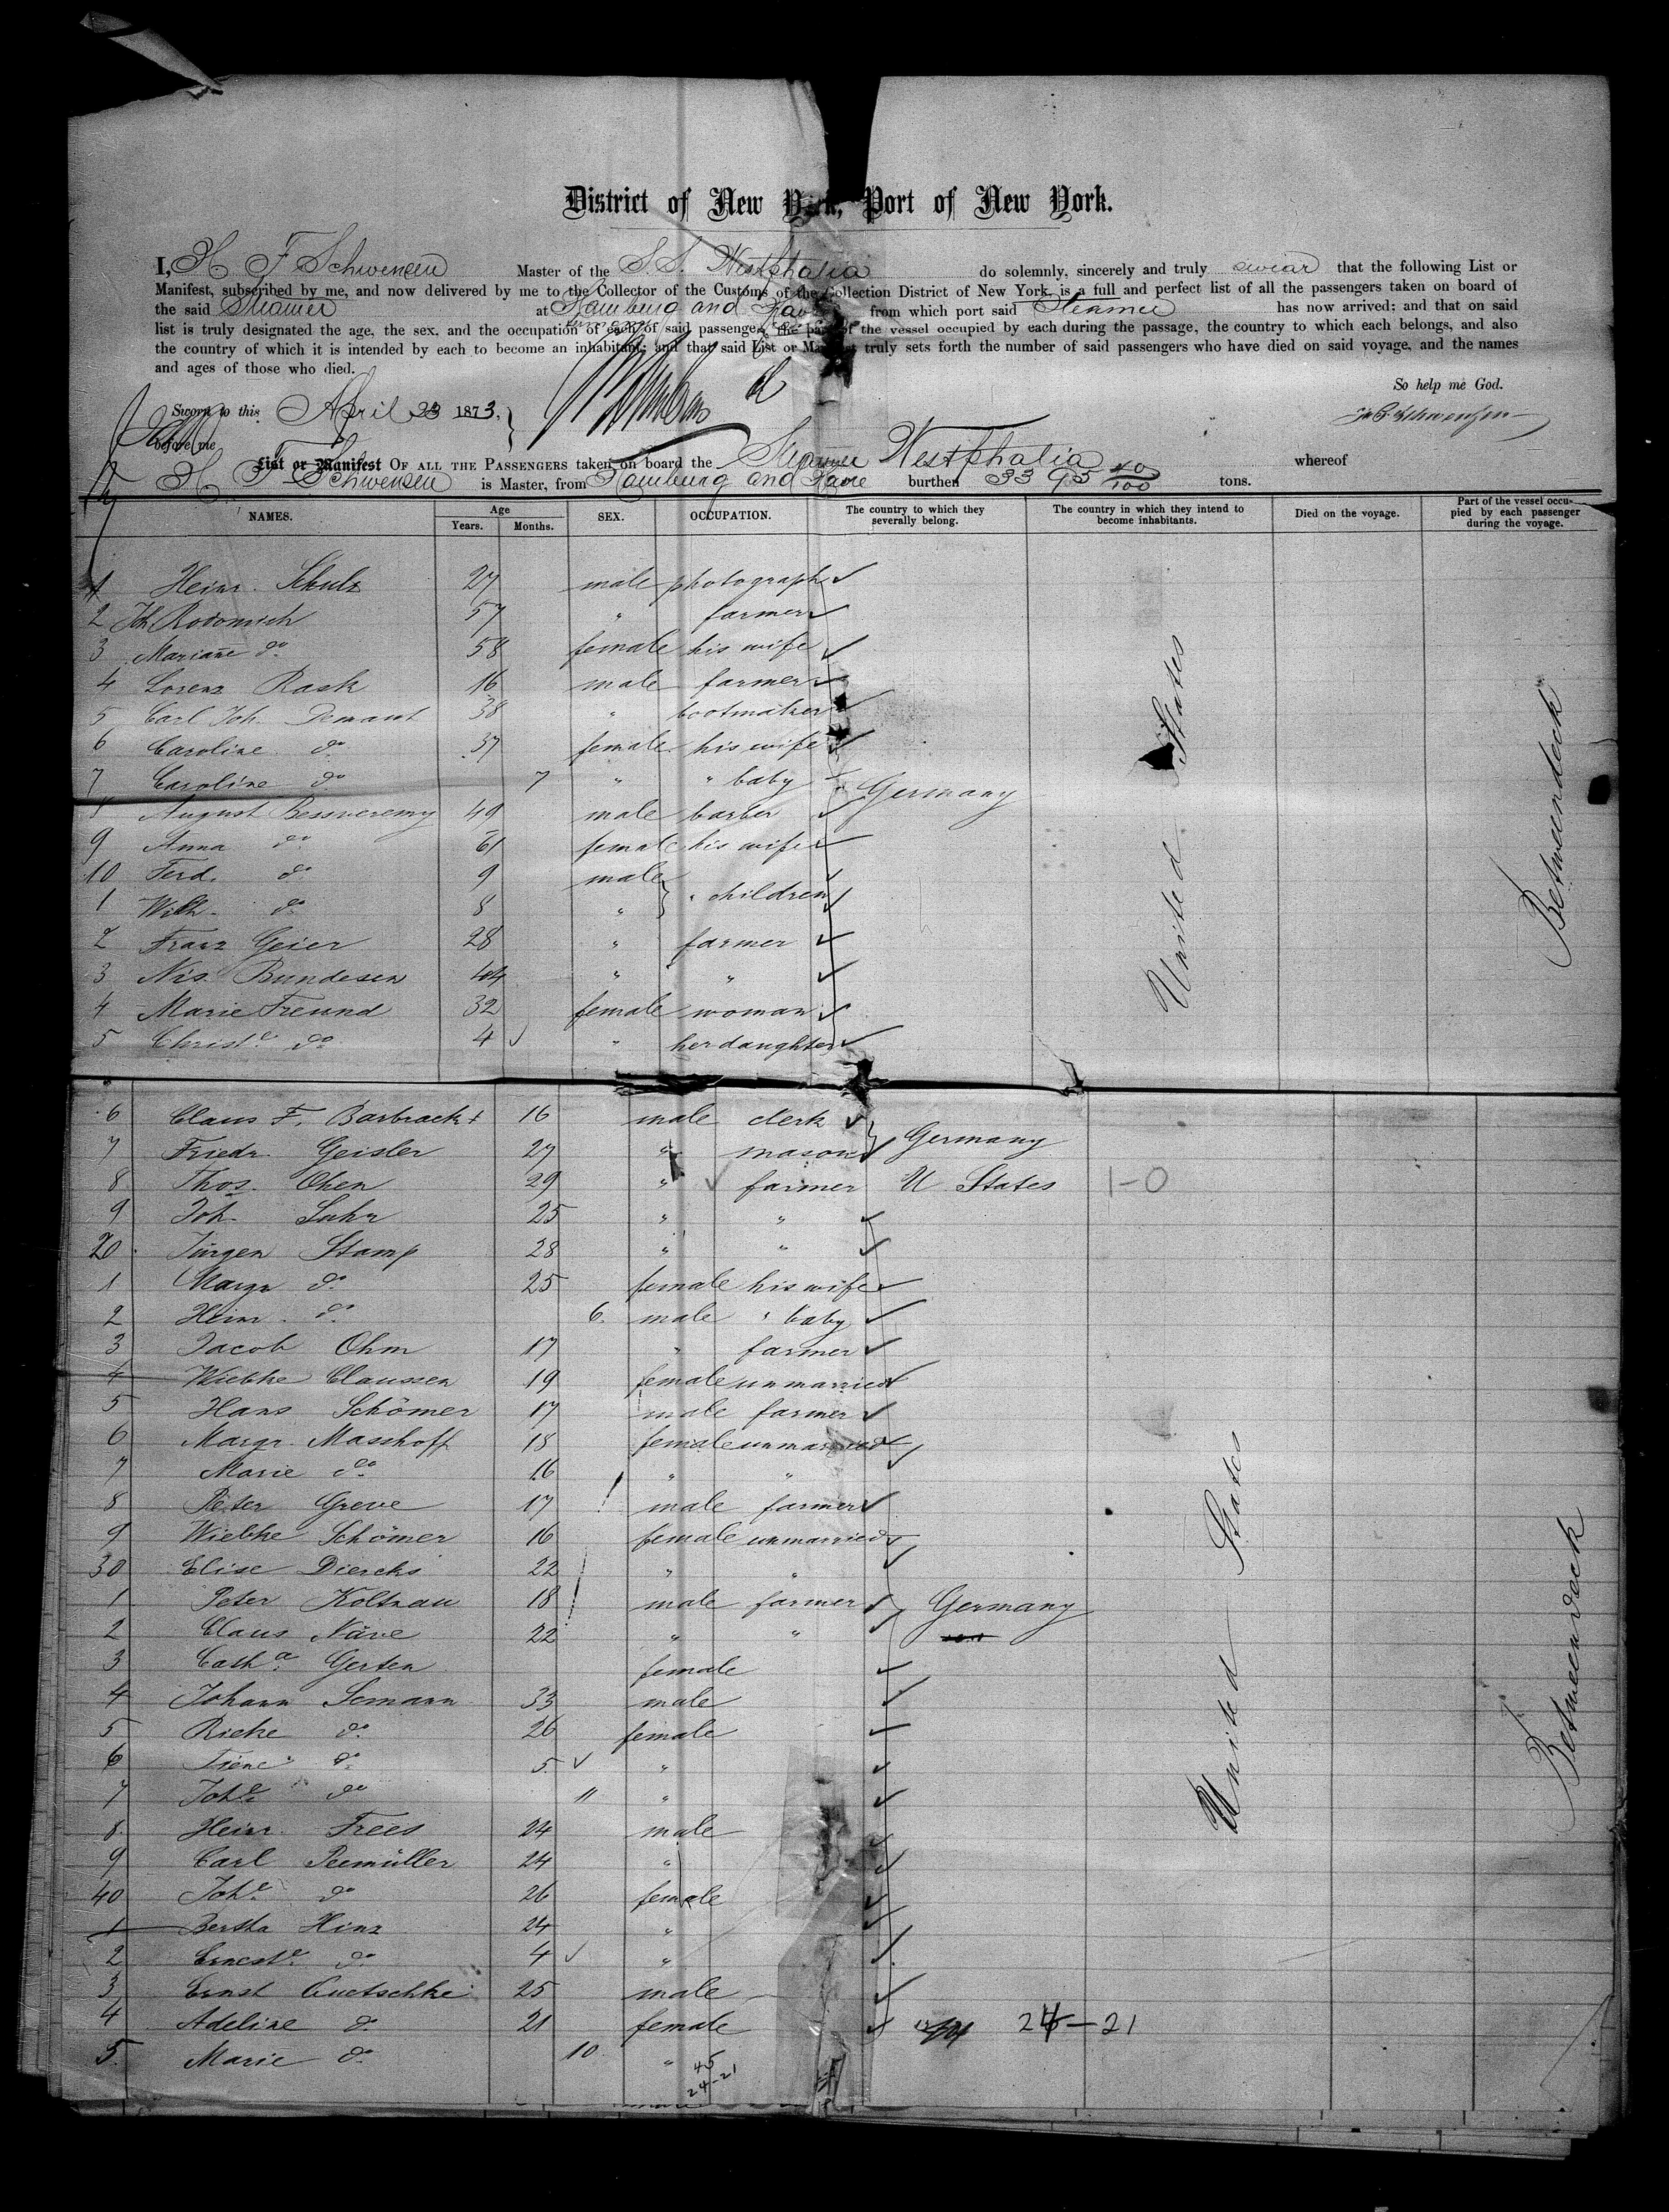 District of New York, Port of New York.
I, H F Schwensen Master of the S.S. Westphalia do solemnly, sincerely and truly swear that the following List or
Manifest, subscribed by me, and now delivered by me to the Collector of the Customs of the Collection District of New York, is a full and perfect list of all the passengers taken on board of
the said Steamer at Hamburg and Havre from which port said Steamer has now arrived; and that on said
list is truly designated the age, the sex, and the occupation of each of said passengers, the part of the vessel occupied by each during the passage, the country to which each belongs, and also
the country of which it is intended by each to become an inhabitant; and that said List or Manifest truly sets forth the number of said passengers who have died on said voyage, and the names
and ages of those who died.
So help me God.
Sworn to this April 23 1873,
before me
List or Manifest OF ALL THE PASSENGERS taken on board the Steamer Westphalia whereof
H. F. Schwensen is Master, from Hamburg and Havre burthen 3395 40/100 tons.
NAMES. Age Years. Months. SEX. OCCUPATION. The country to which they severally belong. The country in which they intend to become inhabitants. Died on the voyage. Part of the vessel occupied by each passenger during the voyage.
1 Heinr. Schulz 27 male photograph
2 Joh. Rodomsch 57 " farmer
3 Mariane do 58 female his wife
4 Lorenz Rask 16 male farmer
5 Carl Joh. Demant 38 " bootmaker
6 Caroline do 37 female his wife
7 Caroline do 7 " " baby Germany
8 August Bessweremy 49 male barber
9 Anna do 61 female his wife
10 Ferd. do 9 male
1 Wilh. do 8 " " children
2 Franz Geier 28 " farmer
3 Nis. Bundesen 44 " "
4 Marie Freund 32 female woman
5 Christe do 4 " her daughter
United States
Betweendeck
6 Claus F. Barbrack 16 male clerk
7 Friedr. Geisler 27 " mason Germany
8 Thos. Ohen 29 " farmer U. States 1-0
9 Joh. Suhr 25 " "
20 Jürgen Stamp 28 " "
1 Margr do 25 female his wife
2 Heinr. do 6 male " baby
3 Jacob Ohm 17 " farmer
4 Wiebke Claussen 19 female unmarried
5 Hans Schömer 17 male farmer
6 Margr. Masshoff 18 female unmarried
7 Marie do 16 " "
8 Peter Greve 17 male farmer
9 Wiebke Schömer 16 female unmarried
30 Elise Diercks 22 " "
1 Peter Koltzau 18 male farmer Germany
2 Claus Näve 22 " "
3 Catha Gerten female
4 Johann Semann 33 male
5 Rieke do 26 female
6 Trene do 5 "
7 Johe do 11 "
8 Heinr. Frees 24 male
9 Carl Peemüller 24 "
40 Johe do 26 female
1 Bertha Hinz 24 "
2 Erneste do 4 "
3 Ernst Quetschke 25 male
4 Adeline do 21 female 24-21
5 Marie do 10 "
45
24-21
United States
Betweendeck